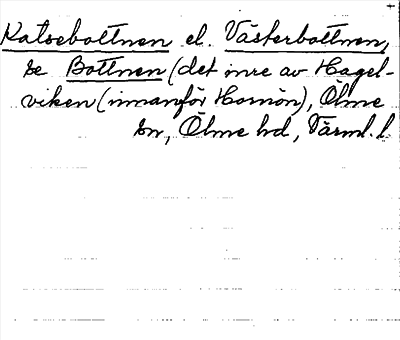 Katsebottnen el. Västerbottnen,
se Bottnen (det inre av Hagel-
viken (innanför Homön), Ölme
sn, Ölme hd, Värml. l.